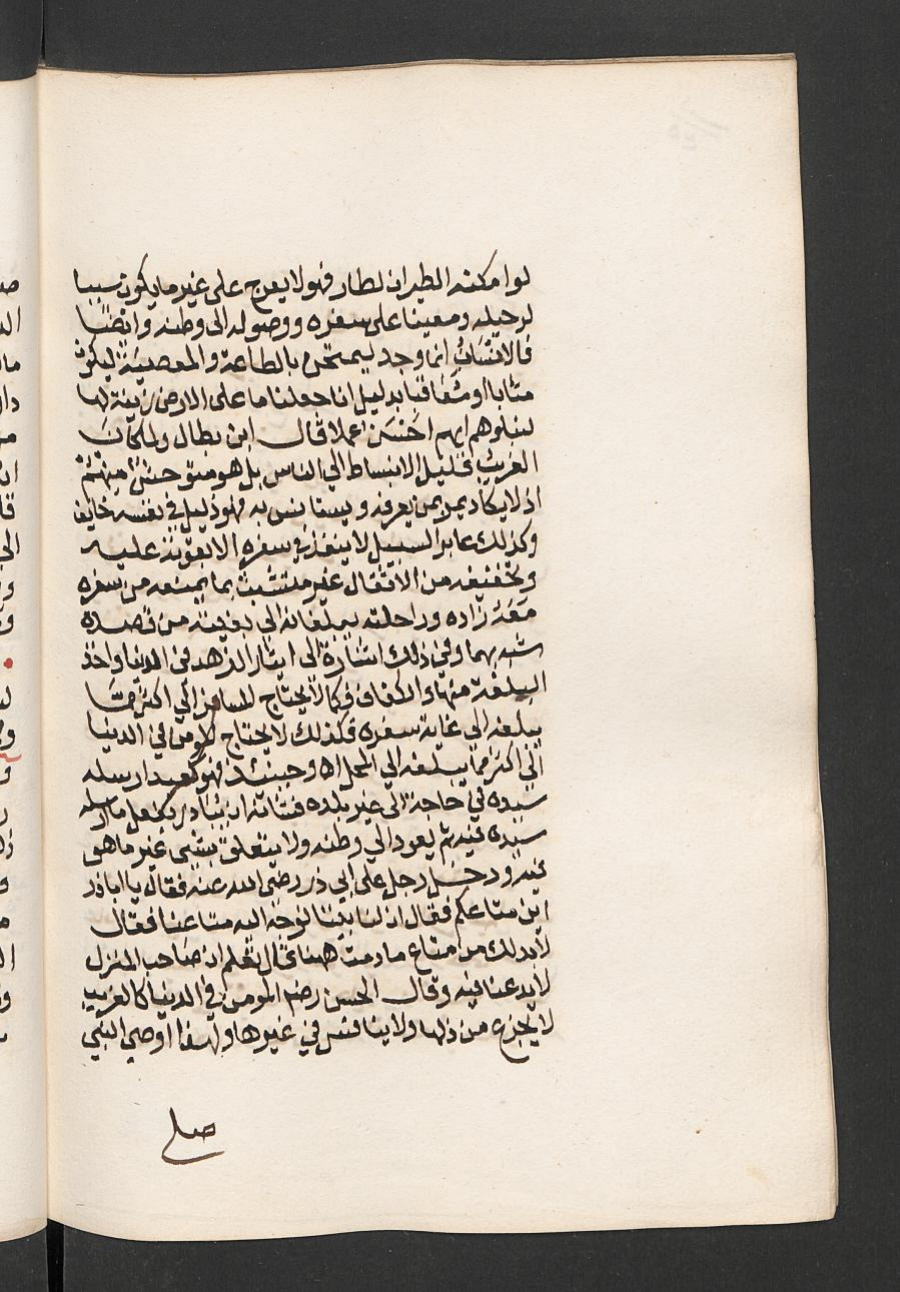 لو امكنه الطيران لطار فهو لا يعرج على غير ما يكون سببا
لرحيله ومعينا على سفره ووصوله الى وطنه وايضا
فالانسان انما وجد ليمتحن بالطاعة والمعصية ليكون
مثابا او معاقبا بدليل انا جعلنا ما على الارض زينة لها
لنبلوهم ايهم احسن عملا قال ابن بطال ولما كان
الغريب قليل الانبساط الي الناس بل هو متوحش منهم
اذ لا يكاد يمر بمن يعرفه ويستانس به فهو ذليل في نفسه خايف
وكذلك عابر السبيل لا ينفذ في سفره الا بقوته عليه
وتخفيفه من الاثقال غير متشبث بما يمنعه من سفره
معه زاده وراحلته يبلغانه الى بغيته من قصده
شبه بهما وفي ذلك اشارة الى ايثار الزهد في الدنيا واخذ
البلغة منها والكفاف فكما لا يحتاج المسافر الي اكثر مما
يبلغه الى غاية سفره فكذلك لا يحتاج المومن في الدنيا
الى اكثر مما يبلغه الي المحل اه وحينئذ فهو كعبد ارسله
سيده في حاجة الى غير بلده فشانه ان يبادر بفعل ما ارسله
سيده فيه ثم يعود الي وطنه ولا يتعلق بشي غير ما هو
فيه ودخل رجل على ابي ذر رضى الله عنه فقال يا اباذر
اين متاعكم فقال ان لنا بيتا نوجه اليه متاعنا فقال
لابد لك من متاع ما دمت ههنا قال تعلم ان صاحب المنزل
لا يدعنا فيه وقال الحسن رضه المومن في الدنيا كالغريب
لا يجزع من ذلها ولا ينافس في غيرها ولهذا اوصي النبي
صلى